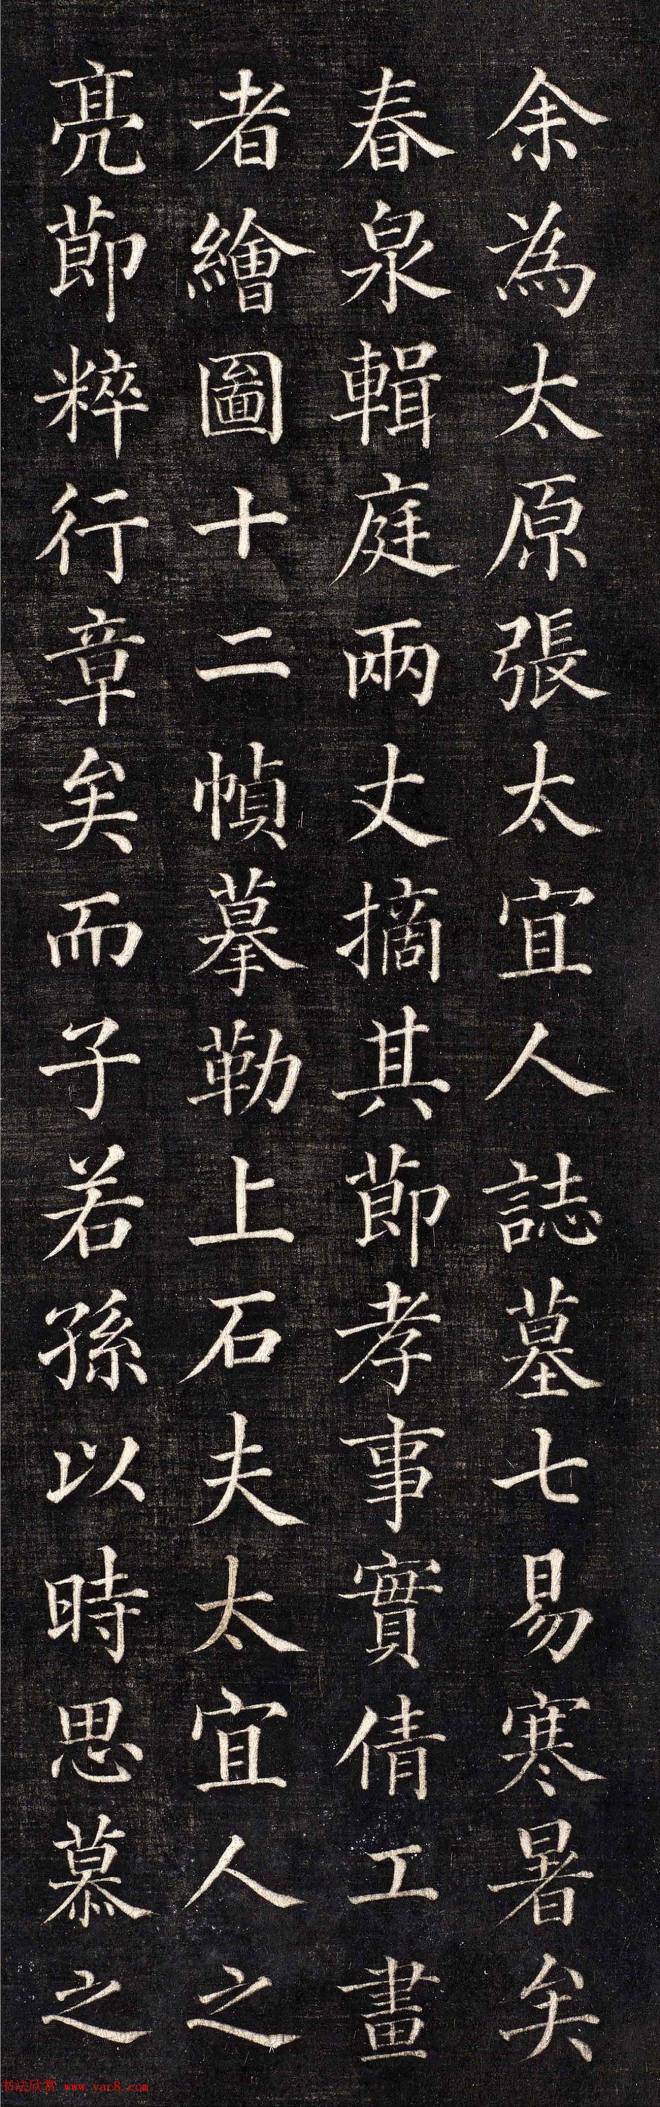 余為太原張太宜人誌墓七易寒暑矣
春泉輯庭兩丈摘其節孝事實倩工畫
者繪圖十二幀摹勒上石夫太宜人之
亮節粹行章矣而子若孫以時思慕之
书法欣赏 www.yac8.com